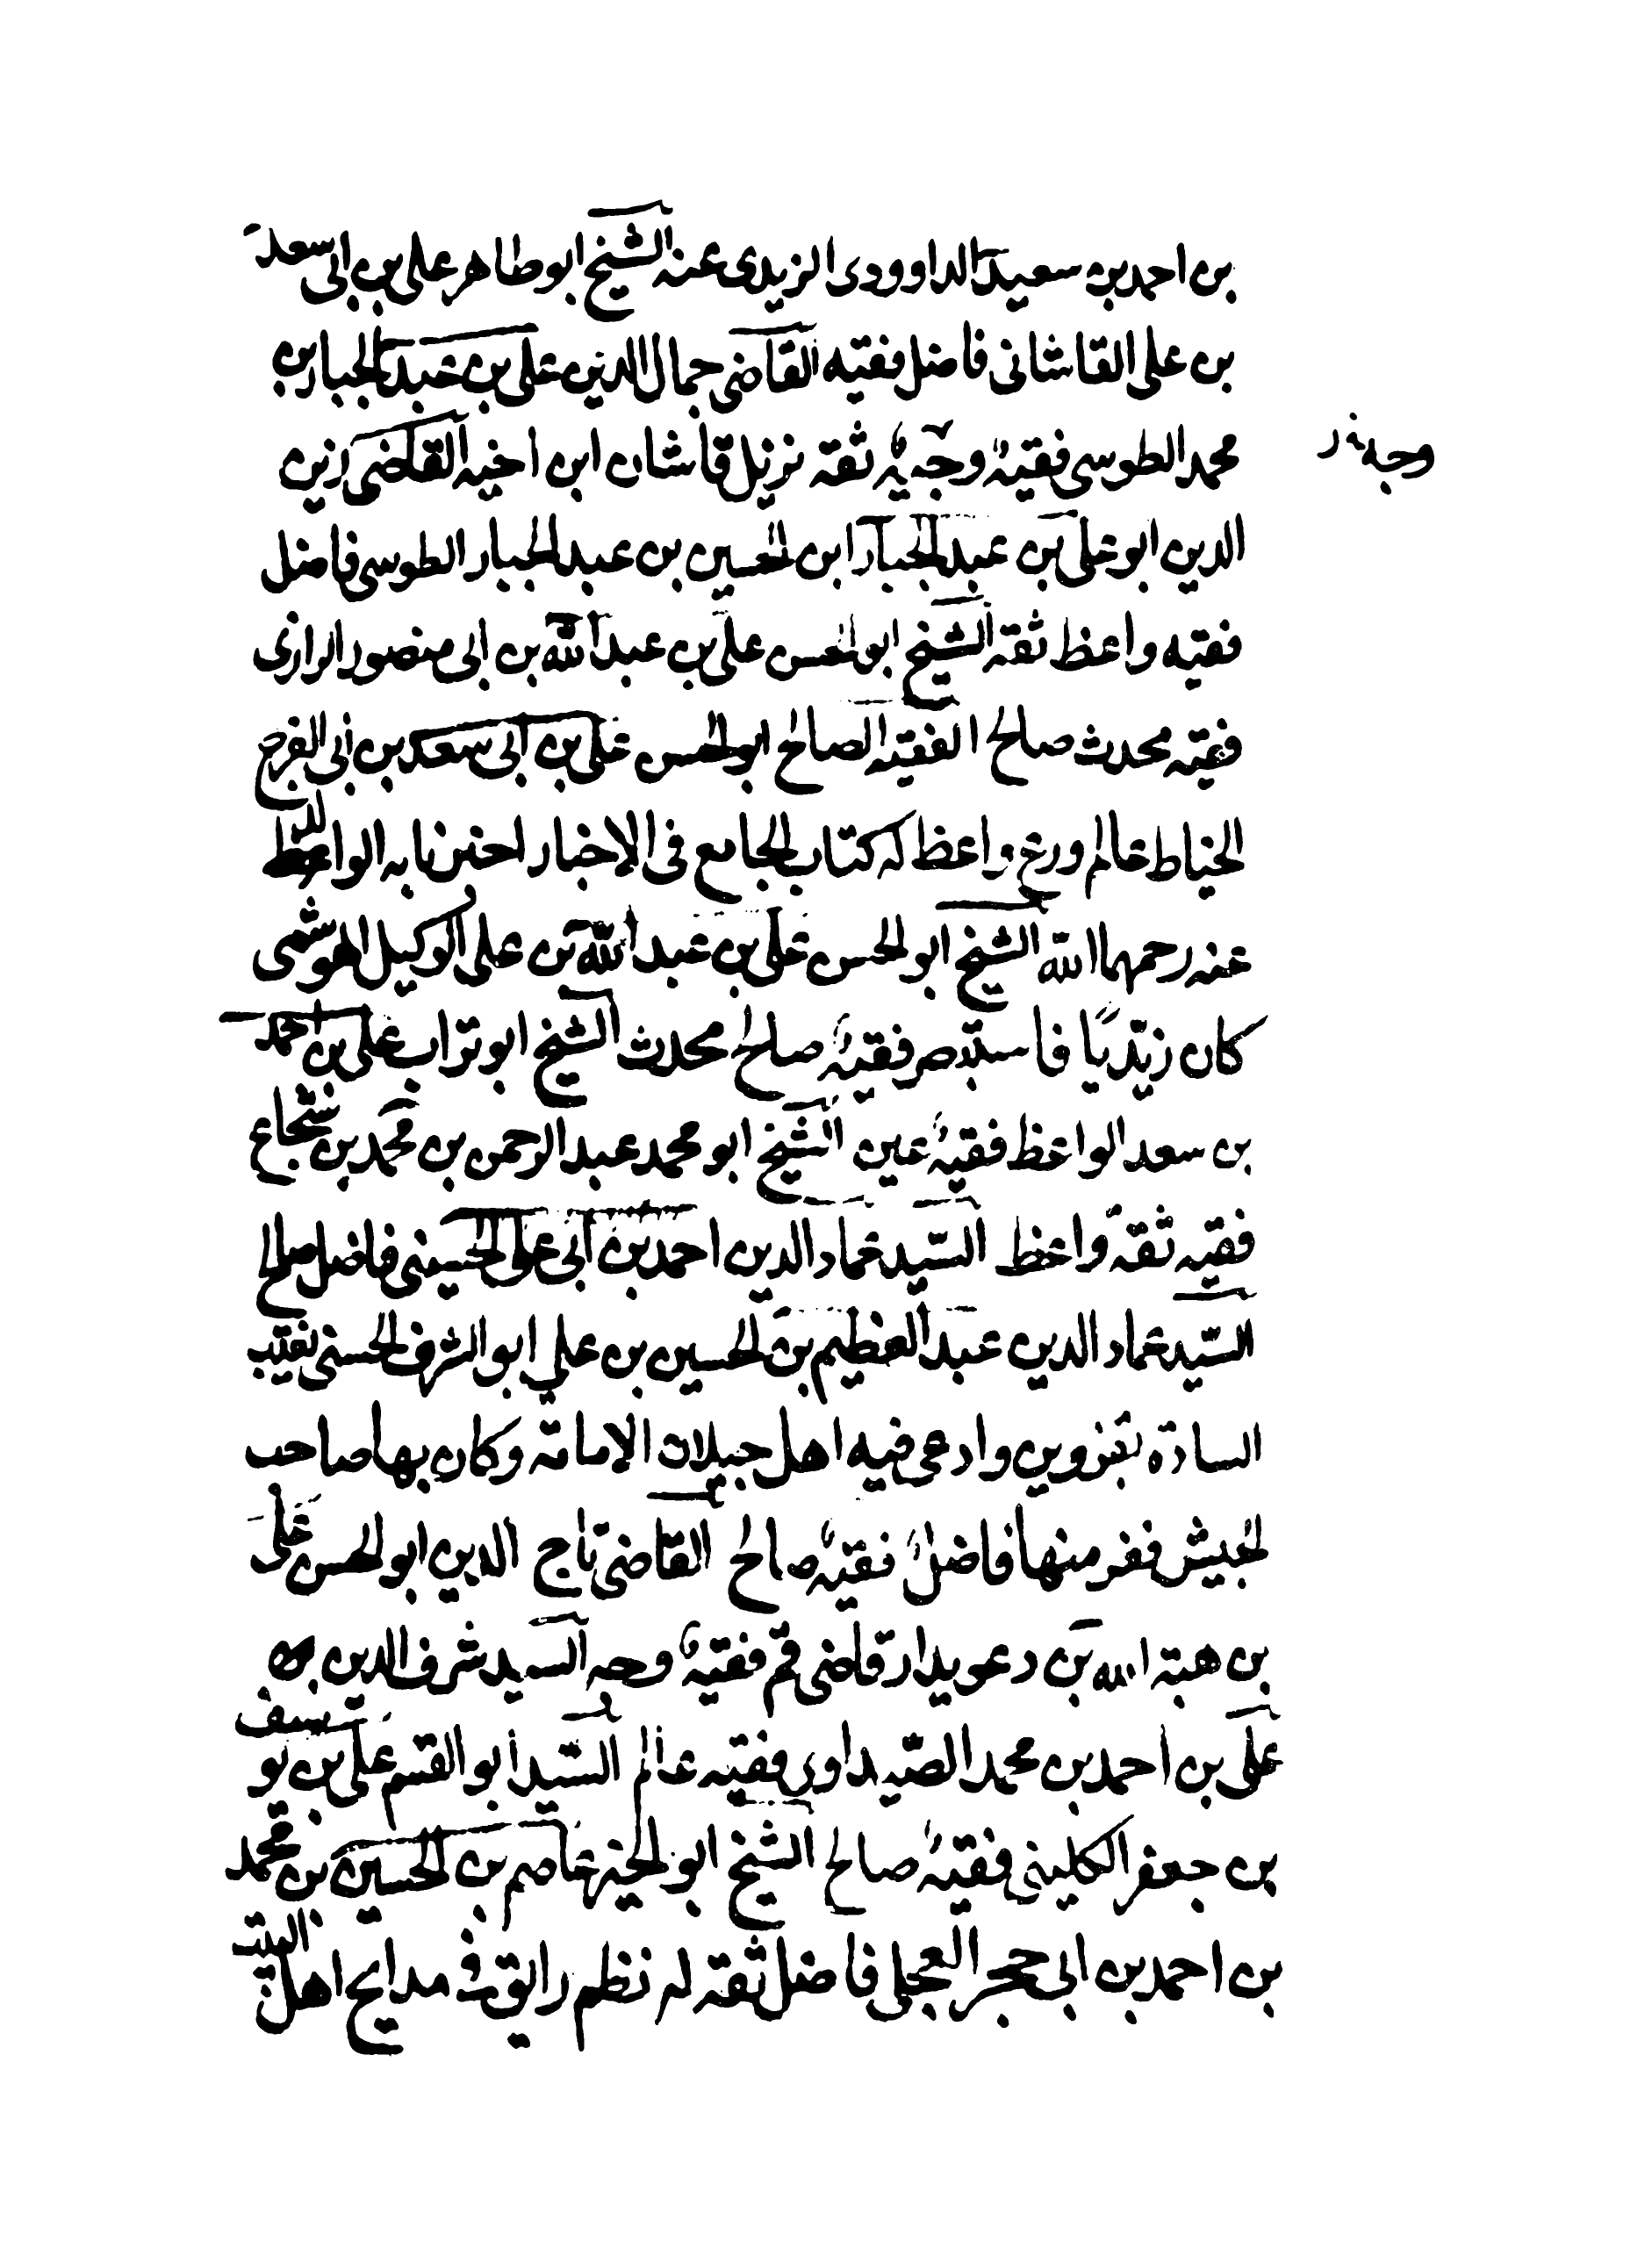 بن احمد بن سعيد الداوودى الزيدى عنه الشيخ ابو طاهر على بن ابى سعد
بن على القاشانى فاضل فقيه القاضى جمال الدين على بن عبد الجبار بن
محمد الطوسى فقيه وجه ثقه نزيل قاشان ابن اخيه القاضى زين
وجه
الدين ابو على بن عبد الجبار ابن الحسين بن عبد الجبار الطوسى فاضل
فقيه واعظ ثقه الشيخ ابو الحسن على بن عبد الله بن ابى منصور الرازى
فقيه محدث صالح الفقيه الصالح ابو الحسن على بن ابى سعد بن ابى الفرج
الخياط عالم ورع واعظ له كتاب الجامع فى الاخبار اخبرنا به الوالد
عنه رحمهما الله الشيخ ابو الحسن على بن عبد الله بن على الوكيل الهوشمى
كان زيديا فاستبصر فقيه صالح محدث الشيخ ابو تراب على بن احمد
بن سعد الواعظ فقيه عين الشيخ ابو محمد عبد الرحمن بن محمد بن شجاع
فقيه ثقة واعظ السيد عماد الدين احمد بن ابى على الحسينى فاضل صالح
السيد عماد الدين عبد العظيم بن الحسين بن على ابو الشرف الحسنى نقيب
السادة بقزوين وادعى فيه اهل جيلان الامامة وكان بها صاحب
الجيش ففر منها فاضل فقيه صالح القاضى تاج الدين ابو الحسن على
بن هبة الله بن دعويدار قاضى قم فقيه وجه السيد شرف الدين
على بن احمد بن محمد الصيداوى فقيه عالم السيد ابو القسم على بن يوسف
بن جعفر الكلينى فقيه صالح الشيخ ابو الخير عاصم بن الحسين بن محمد
بن احمد بن ابى حجر العجلى فاضل ثقه له نظم رايق فى مدايح اهل البيت